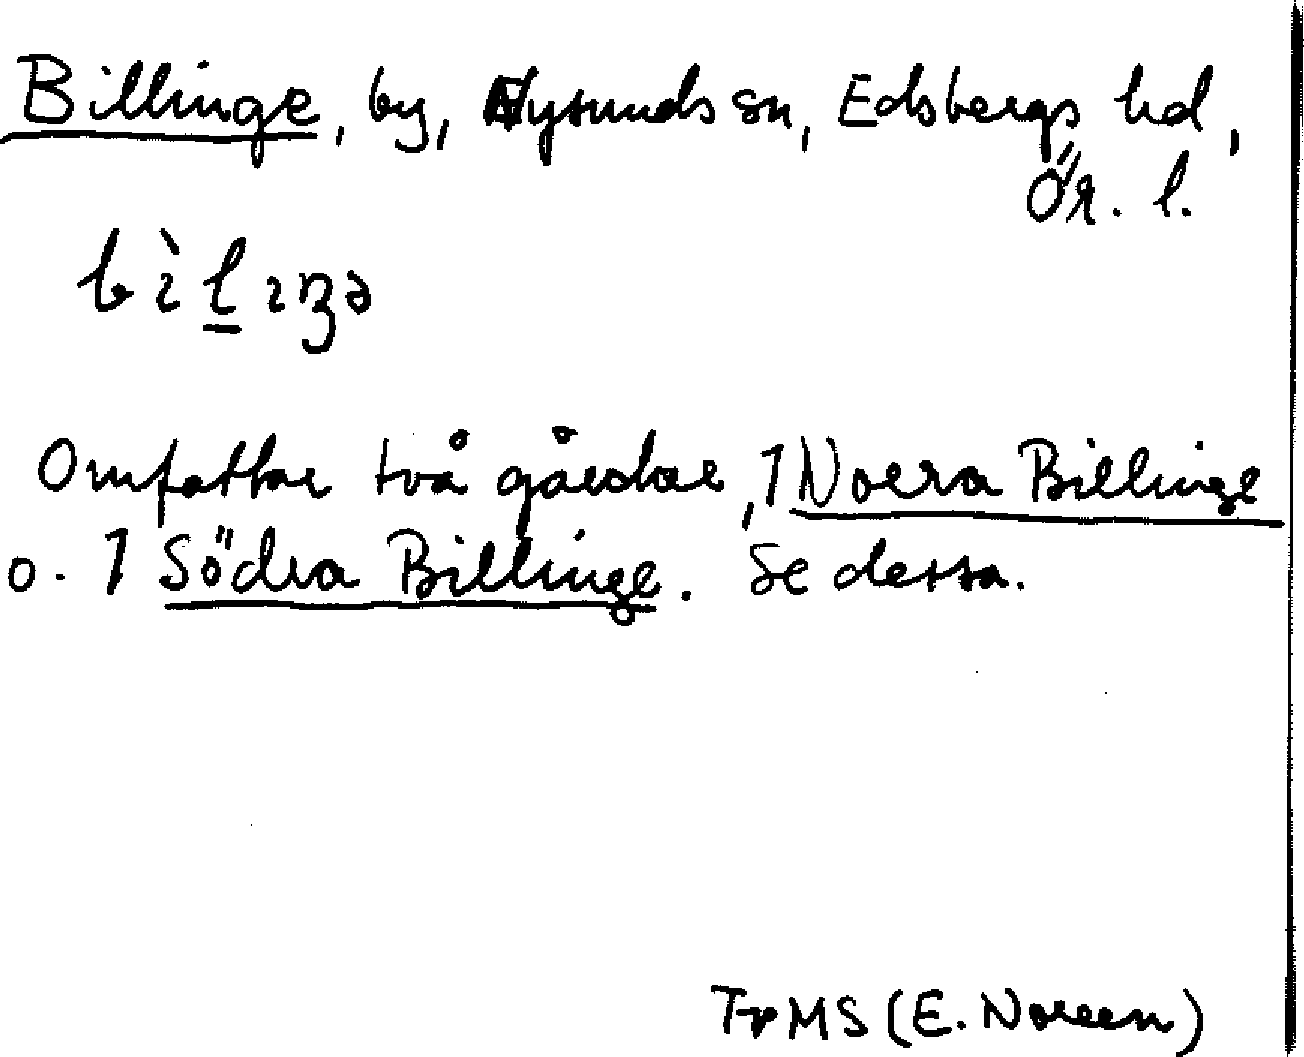 Billinge, by, Nysunds sn, Edsbergs hd,
Ör. l.
bìl̲ıŋə
Omfattar två gårdar, 1 Norra Billinge
o. 1 Södra Billinge. Se dessa.
MS (E. Noreen)